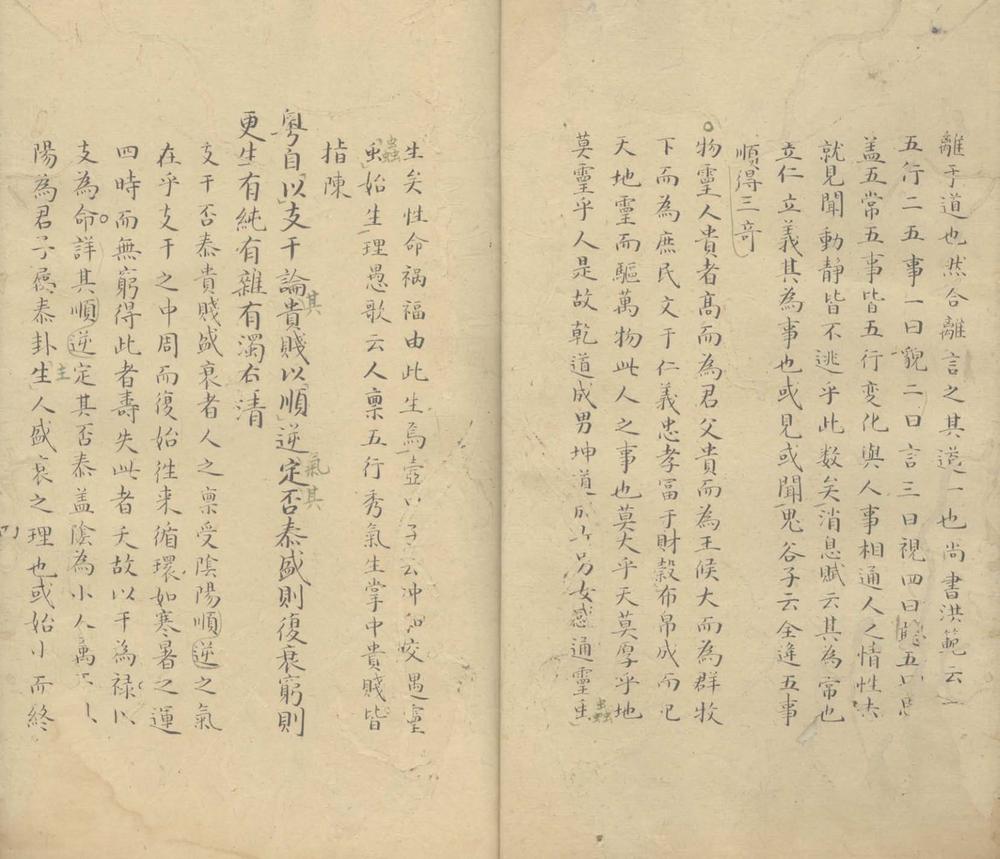 離于道也然合離言之其道一也尚書洪範云一
五行二五事一曰貌二曰言三曰視四曰聽五曰思
盖五常五事皆五行变化與人事相通人之情性去
就見聞動靜皆不逃乎此数矣消息賦云其為常也
立仁立義其為事也或見或聞鬼谷子云全逢五事
順得三奇
物靈人貴者高而為君父貴而為王侯大而為群牧
下而為庶民文于仁義忠孝富于財穀布帛成而
天地靈而驅萬物此人之事也莫大乎天莫厚乎地
莫靈乎人是故乾道成男坤道成女男女感通靈虫
蟲
生矣性命禍福由此生焉壺子云冲和交遇靈
虫始生理愚歌云人禀五行秀氣生掌中貴賤皆
蟲
指陳
粤自以支干論貴賤以順逆定否泰盛則復衰窮則
其
氣其
更生有純有雜有濁有清
支干否泰貴賤盛衰者人之禀受陰陽順逆之氣
在乎支干之中周而復始往来循環如寒暑之運
四時而無窮得此者壽失此者夭故以干為禄以
支為命詳其順逆定其否泰盖陰為小人為否
陽為君子為泰卦生人盛衰之理也或始小而終
主